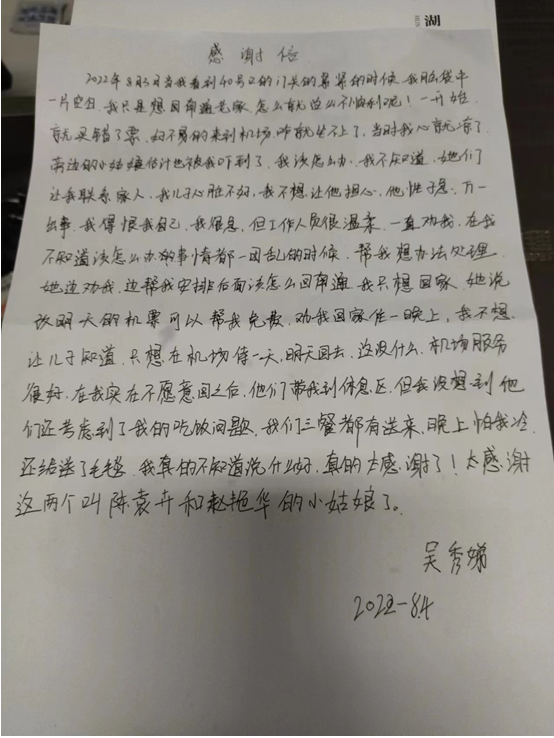 湖
感谢信
2022年8月3日当我看到40号口的门关的紧紧的时候,我脑袋中
一片空白,我只是想回南通老家,怎么就这么不顺利呢!一开始
就买错了票,好不容易的来到机场,咋就坐不上了,当时我心就凉了,
旁边的小姑娘估计也被我吓到了,我该怎么办,我不知道,她们
让我联系家人,我儿子心脏不好,我不想让他担心,他性子急,万一
出事,我得恨我自己,我很急,但工作人员很温柔,一直劝我,在我
不知道该怎么办的事情都一团乱的时候,帮我想办法处理,
她边劝我,边帮我安排后面该怎么回南通,我只想回家,她说
改明天的机票可以帮我免费,劝我回家住一晚上,我不想
让儿子知道,只想在机场待一天,明天回去,这没什么,机场服务
很好,在我实在不愿意回之后,他们带我到休息区,但我没想到他
们还考虑到了我的吃饭问题,我们三餐都有送来,晚上怕我冷
还给送了毛毯,我真的不知道说什么好,真的太感谢了!太感谢
这两个叫陈袁卉和赵艳华的小姑娘了。
吴秀娣
2022-8.4